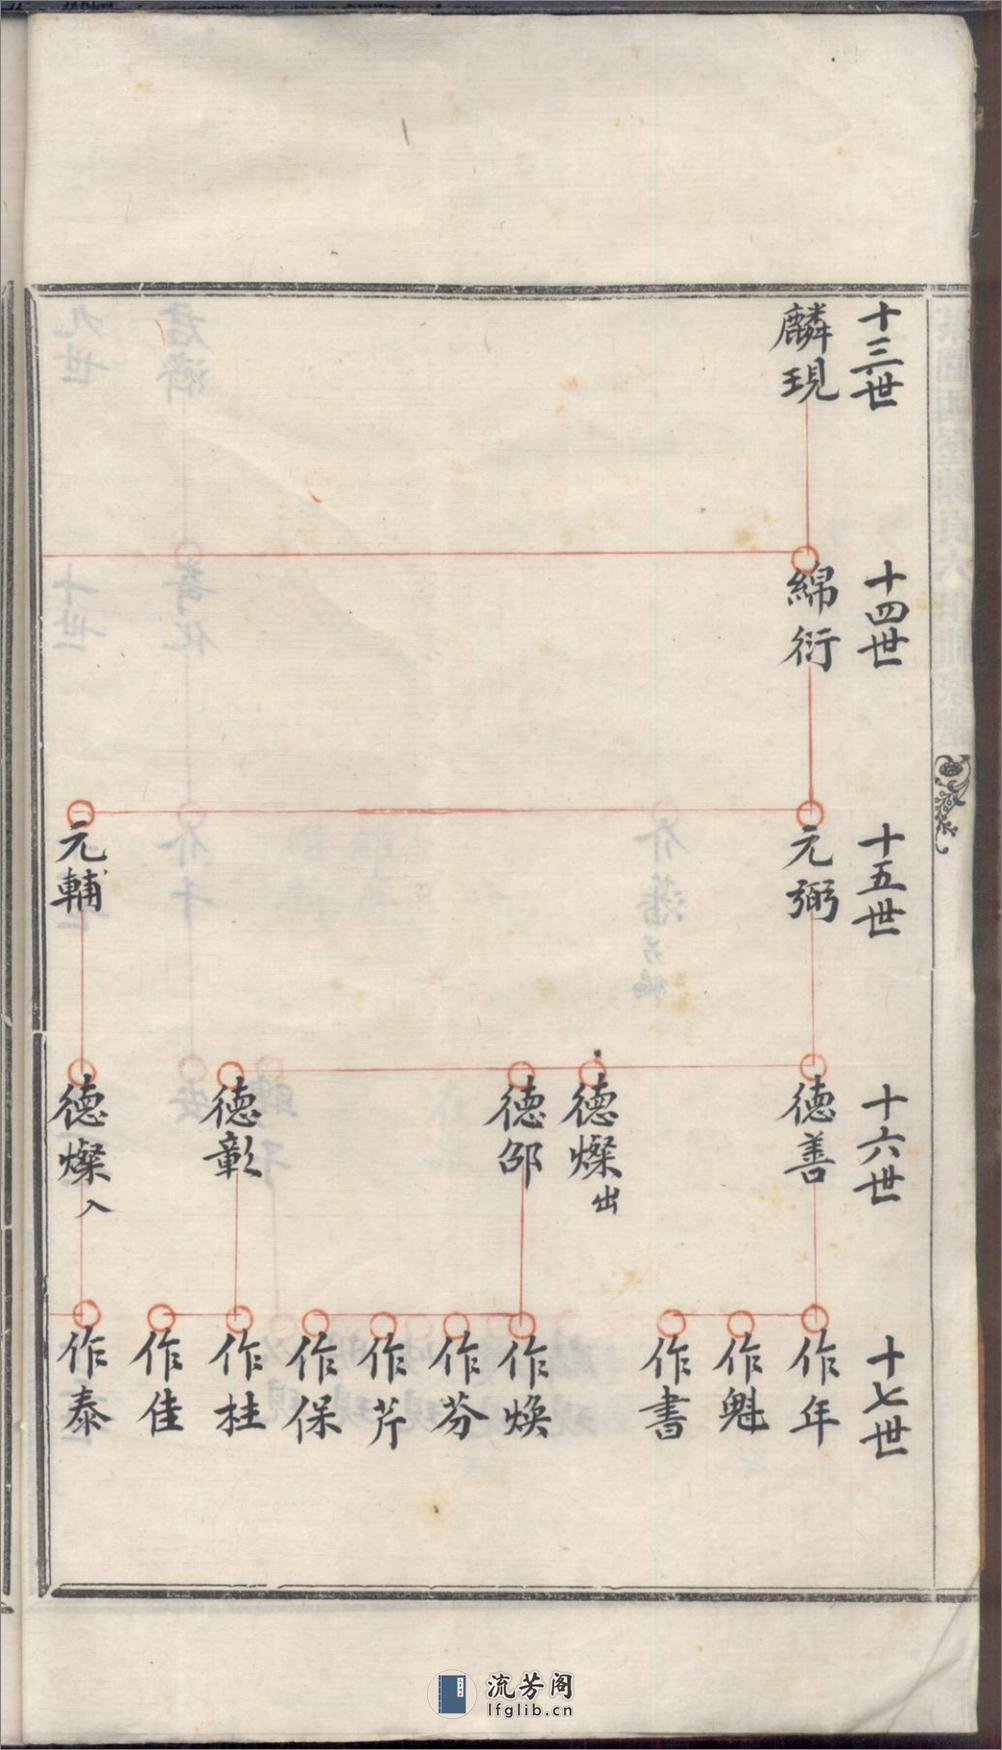 十三世
麟現
十四世
綿衍
十五世
元弼
元輔
十六世
德善
德燦出
德邵
德彰
德燦入
十七世
作年
作魁
作書
作煥
作芬
作芹
作保
作桂
作佳
作泰
流芳阁
lfglib.cn